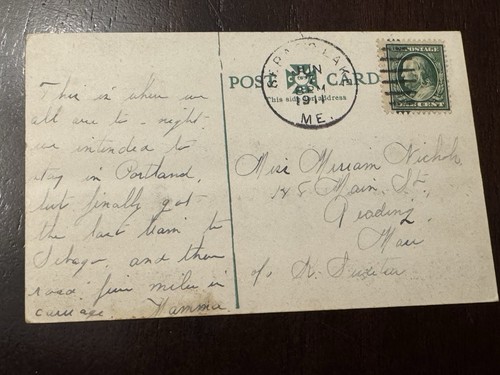 This is where we
all are to-night
we intended to
stay in Portland,
but finally got
the last train to
Sebago, and then
road five miles in
carriage. Mamma
POST CARD
This side for address
LAKE
JUN
PM
1911
ME.
POSTAGE
ONE CENT
Miss Miriam Nichols
Main St,
Reading,
Mass
c/o